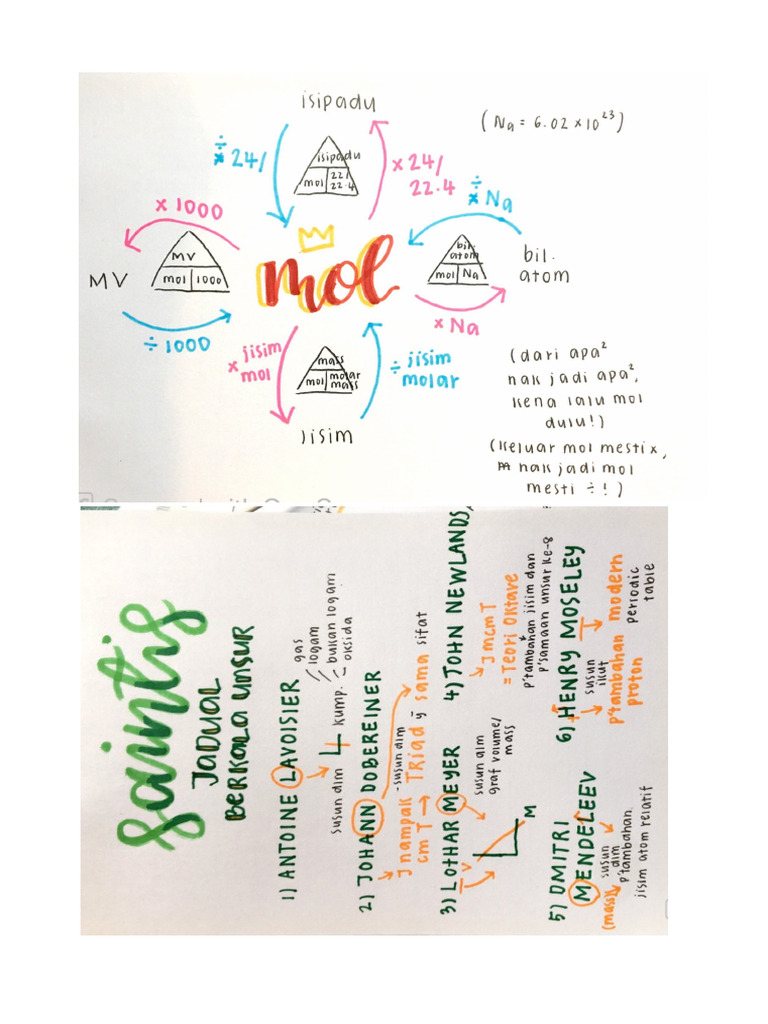 isipadu
(Na = 6.02 × 10²³)
÷ 24/
isipadu
mol 22/
22.4
× 24/
22.4
÷ Na
× 1000
MV
mol 1000
MV
mol
bil.
atom
mol Na
bil.
atom
÷ 1000
× Na
× jisim
mol
mass
mol molar
mass
÷ jisim
molar
Jisim
(dari apa²
nak jadi apa²,
kena lalu mol
dulu!)
(keluar mol mesti x,
nak jadi mol
mesti ÷!)
saintis
JADUAL
BERKALA UNSUR
1) ANTOINE LAVOISIER
susun dlm 4 kump.
gas
logam
bukan logam
oksida
2) JOHANN DOBEREINER
J nampak
cm T →
-susun dlm
TRIAD ȳ sama sifat
3) LOTHAR MEYER
V
M
susun dlm
graf volume/
mass
4) JOHN NEWLANDS
J mcm T
= Teori Oktave
p'tambahan jisim dan
p'samaan unsur ke-8
5) DMITRI
MENDELEEV
(mass)
susun
dlm
p'tambahan
jisim atom relatif
6) HENRY MOSELEY
susun
ikut
p'tambahan
proton
modern
periodic
table